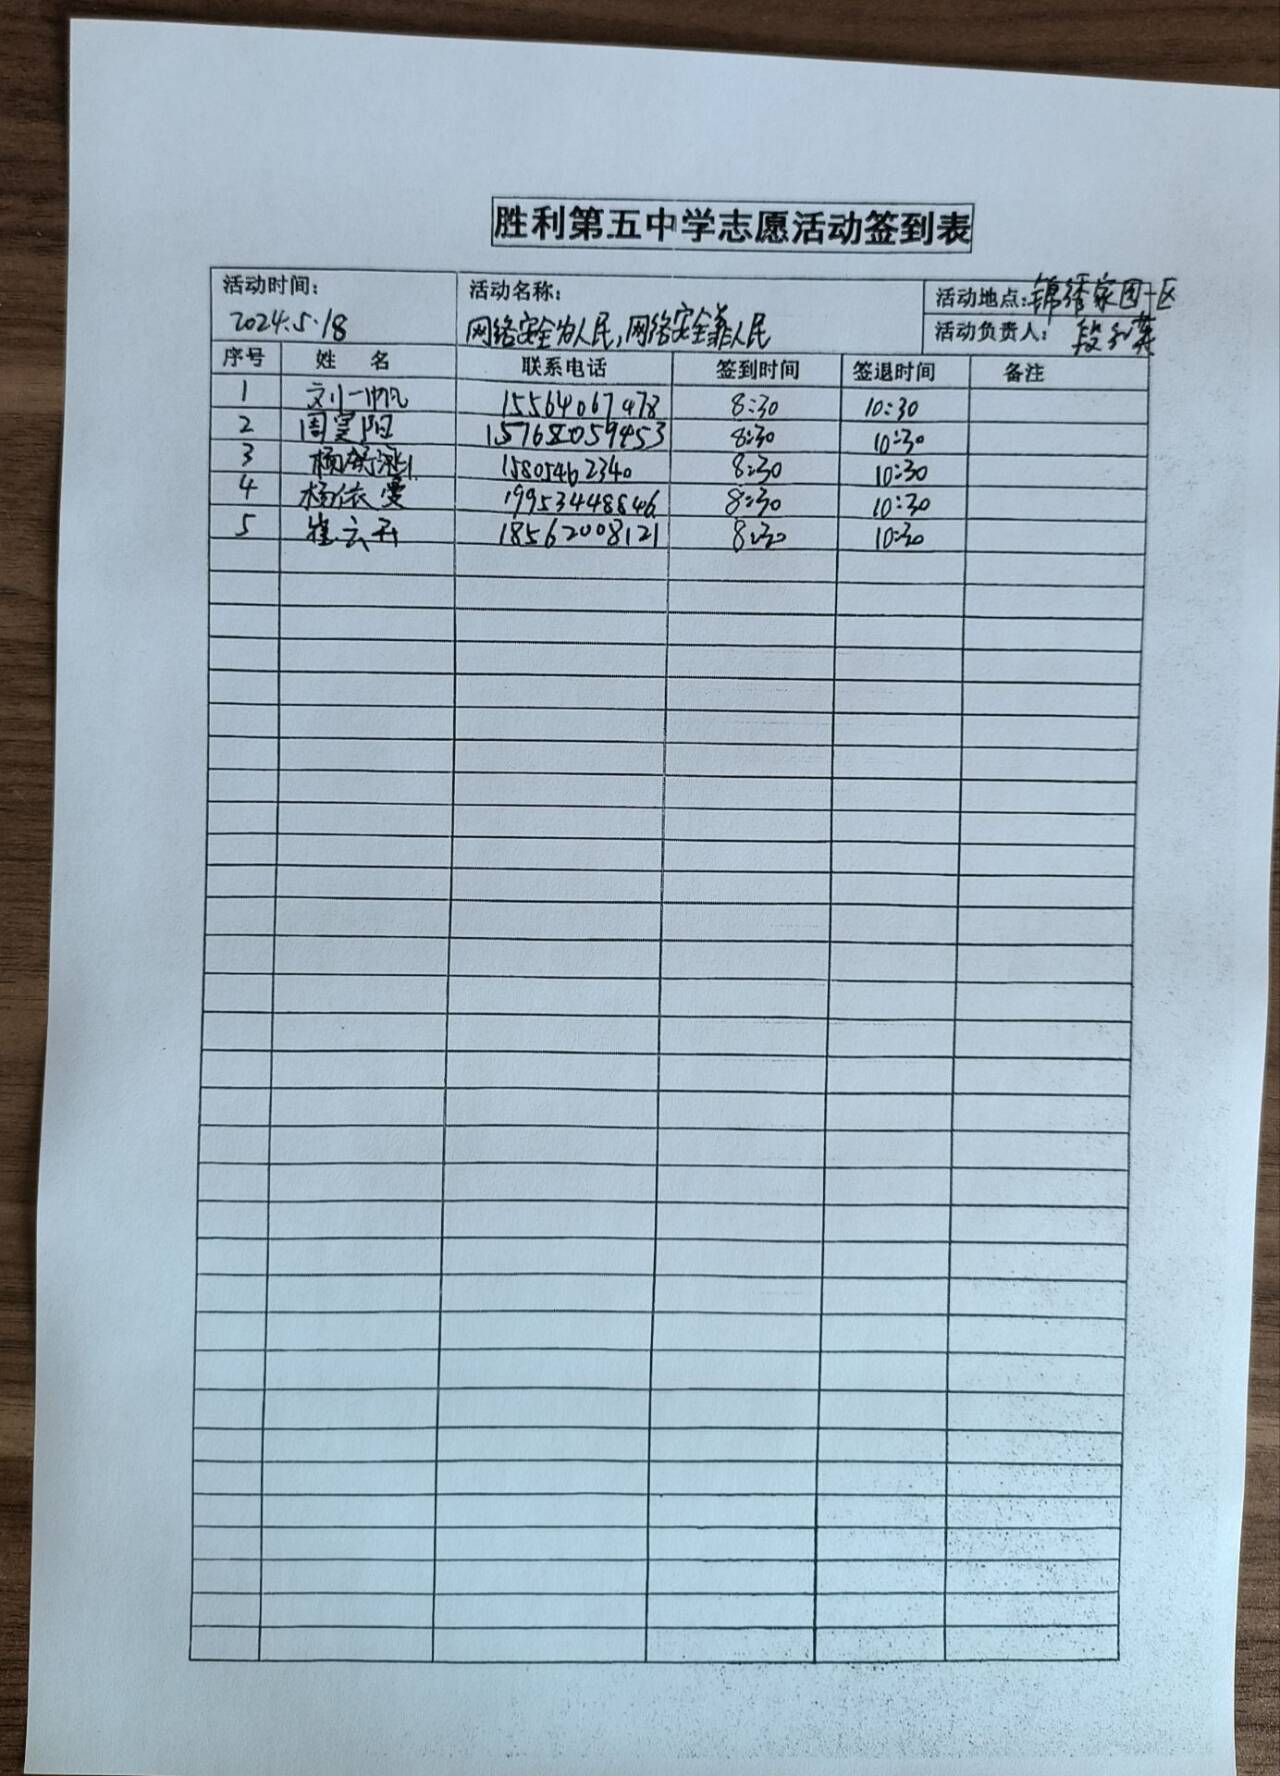 胜利第五中学志愿活动签到表
活动时间: 活动名称: 活动地点:锦绣家园一区
2024.5.18 网络安全为人民,网络安全靠人民 活动负责人: 段
序号 姓 名 联系电话 签到时间 签退时间 备注
1 刘一帆 15564067478 8:30 10:30
2 周昊阳 15768059453 8:30 10:30
3 杨舒涵 15805462340 8:30 10:30
4 杨依曼 19953448846 8:30 10:30
5 崔云 18562008121 8:30 10:30